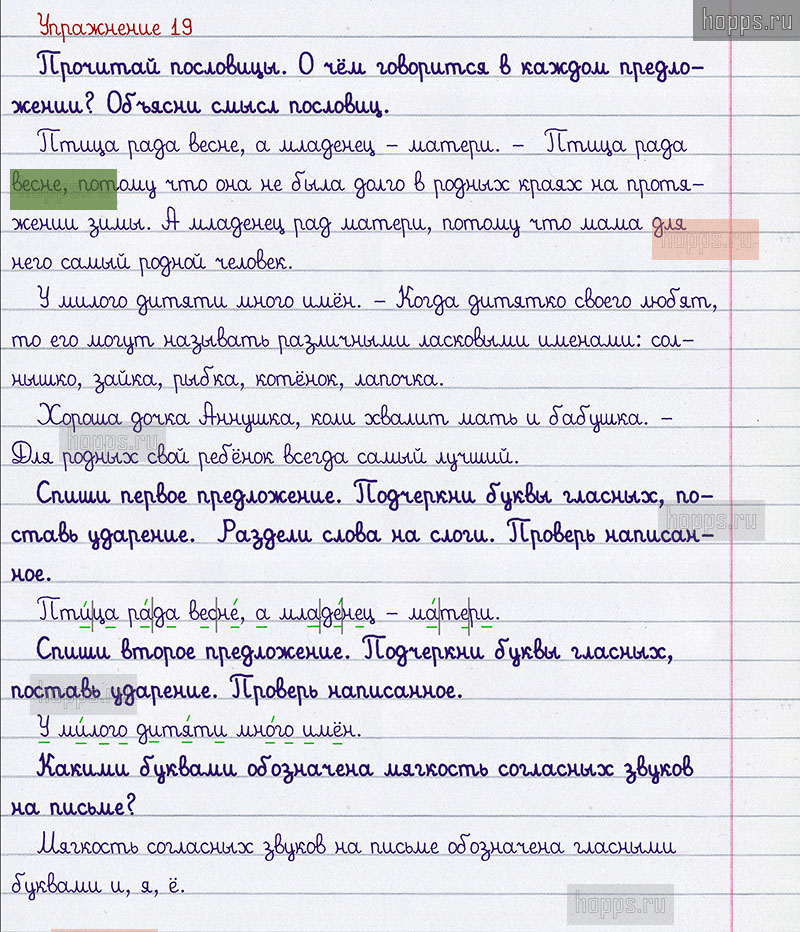 hopps.ru
Упражнение 19
Прочитай пословицы. О чём говорится в каждом предло-
жении? Объясни смысл пословиц.
Птица рада весне, а младенец – матери. – Птица рада
весне, потому что она не была долго в родных краях на протя-
жении зимы. А младенец рад матери, потому что мама для
него самый родной человек.
У милого дитяти много имён. – Когда дитятко своего любят,
то его могут называть различными ласковыми именами: сол-
нышко, зайка, рыбка, котёнок, лапочка.
Хороша дочка Аннушка, коли хвалит мать и бабушка. –
Для родных свой ребёнок всегда самый лучший.
Спиши первое предложение. Подчеркни буквы гласных, по-
ставь ударение. Раздели слова на слоги. Проверь написан-
ное.
Пти́|ца ра́|да вес|не́, а мла|де́|нец – ма́|те|ри.
Спиши второе предложение. Подчеркни буквы гласных,
поставь ударение. Проверь написанное.
У ми́лого дитя́ти мно́го имён.
Какими буквами обозначена мягкость согласных звуков
на письме?
Мягкость согласных звуков на письме обозначена гласными
буквами и, я, ё.
hopps.ru